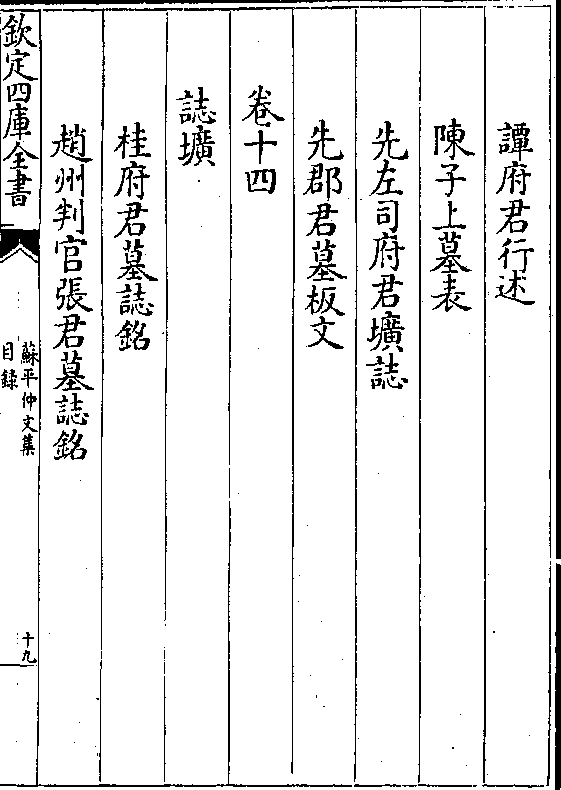 譚府君行述
陳子上墓表
先左司府君壙誌
先郡君墓板文
卷十四
誌壙
桂府君墓誌銘
趙州判官張君墓誌銘
欽定四庫全書
蘇平仲文集
目錄
十九